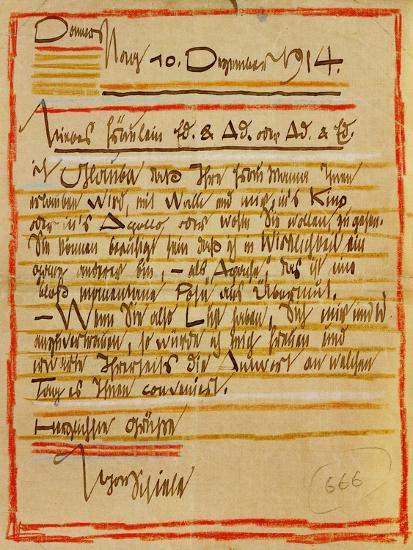 Donners
tag 10. Dezember 1914.
Liebes Fräulein Ed. & Ad. oder Ad. & Ed.
ich Glaube daß Ihre Frau Mama Ihnen
erlauben wird, mit Walli und mir, in's Kino
oder in's Apollo, oder wohin Sie wollen, zu gehen.
Sie können beruhigt sein daß ich in Wirklichkeit ein
ganz anderer bin, – als Apache, das ist nur
bloß momentane Pose aus Übermut.
– Wenn Sie also Lust haben, Sich mir und W.
anzuvertrauen, so würde es mich freuen und
erwarte Ihrerseits die Antwort an welchen
Tag es Ihnen conveniert.
Herzlichste Grüße
Egon Schiele
666